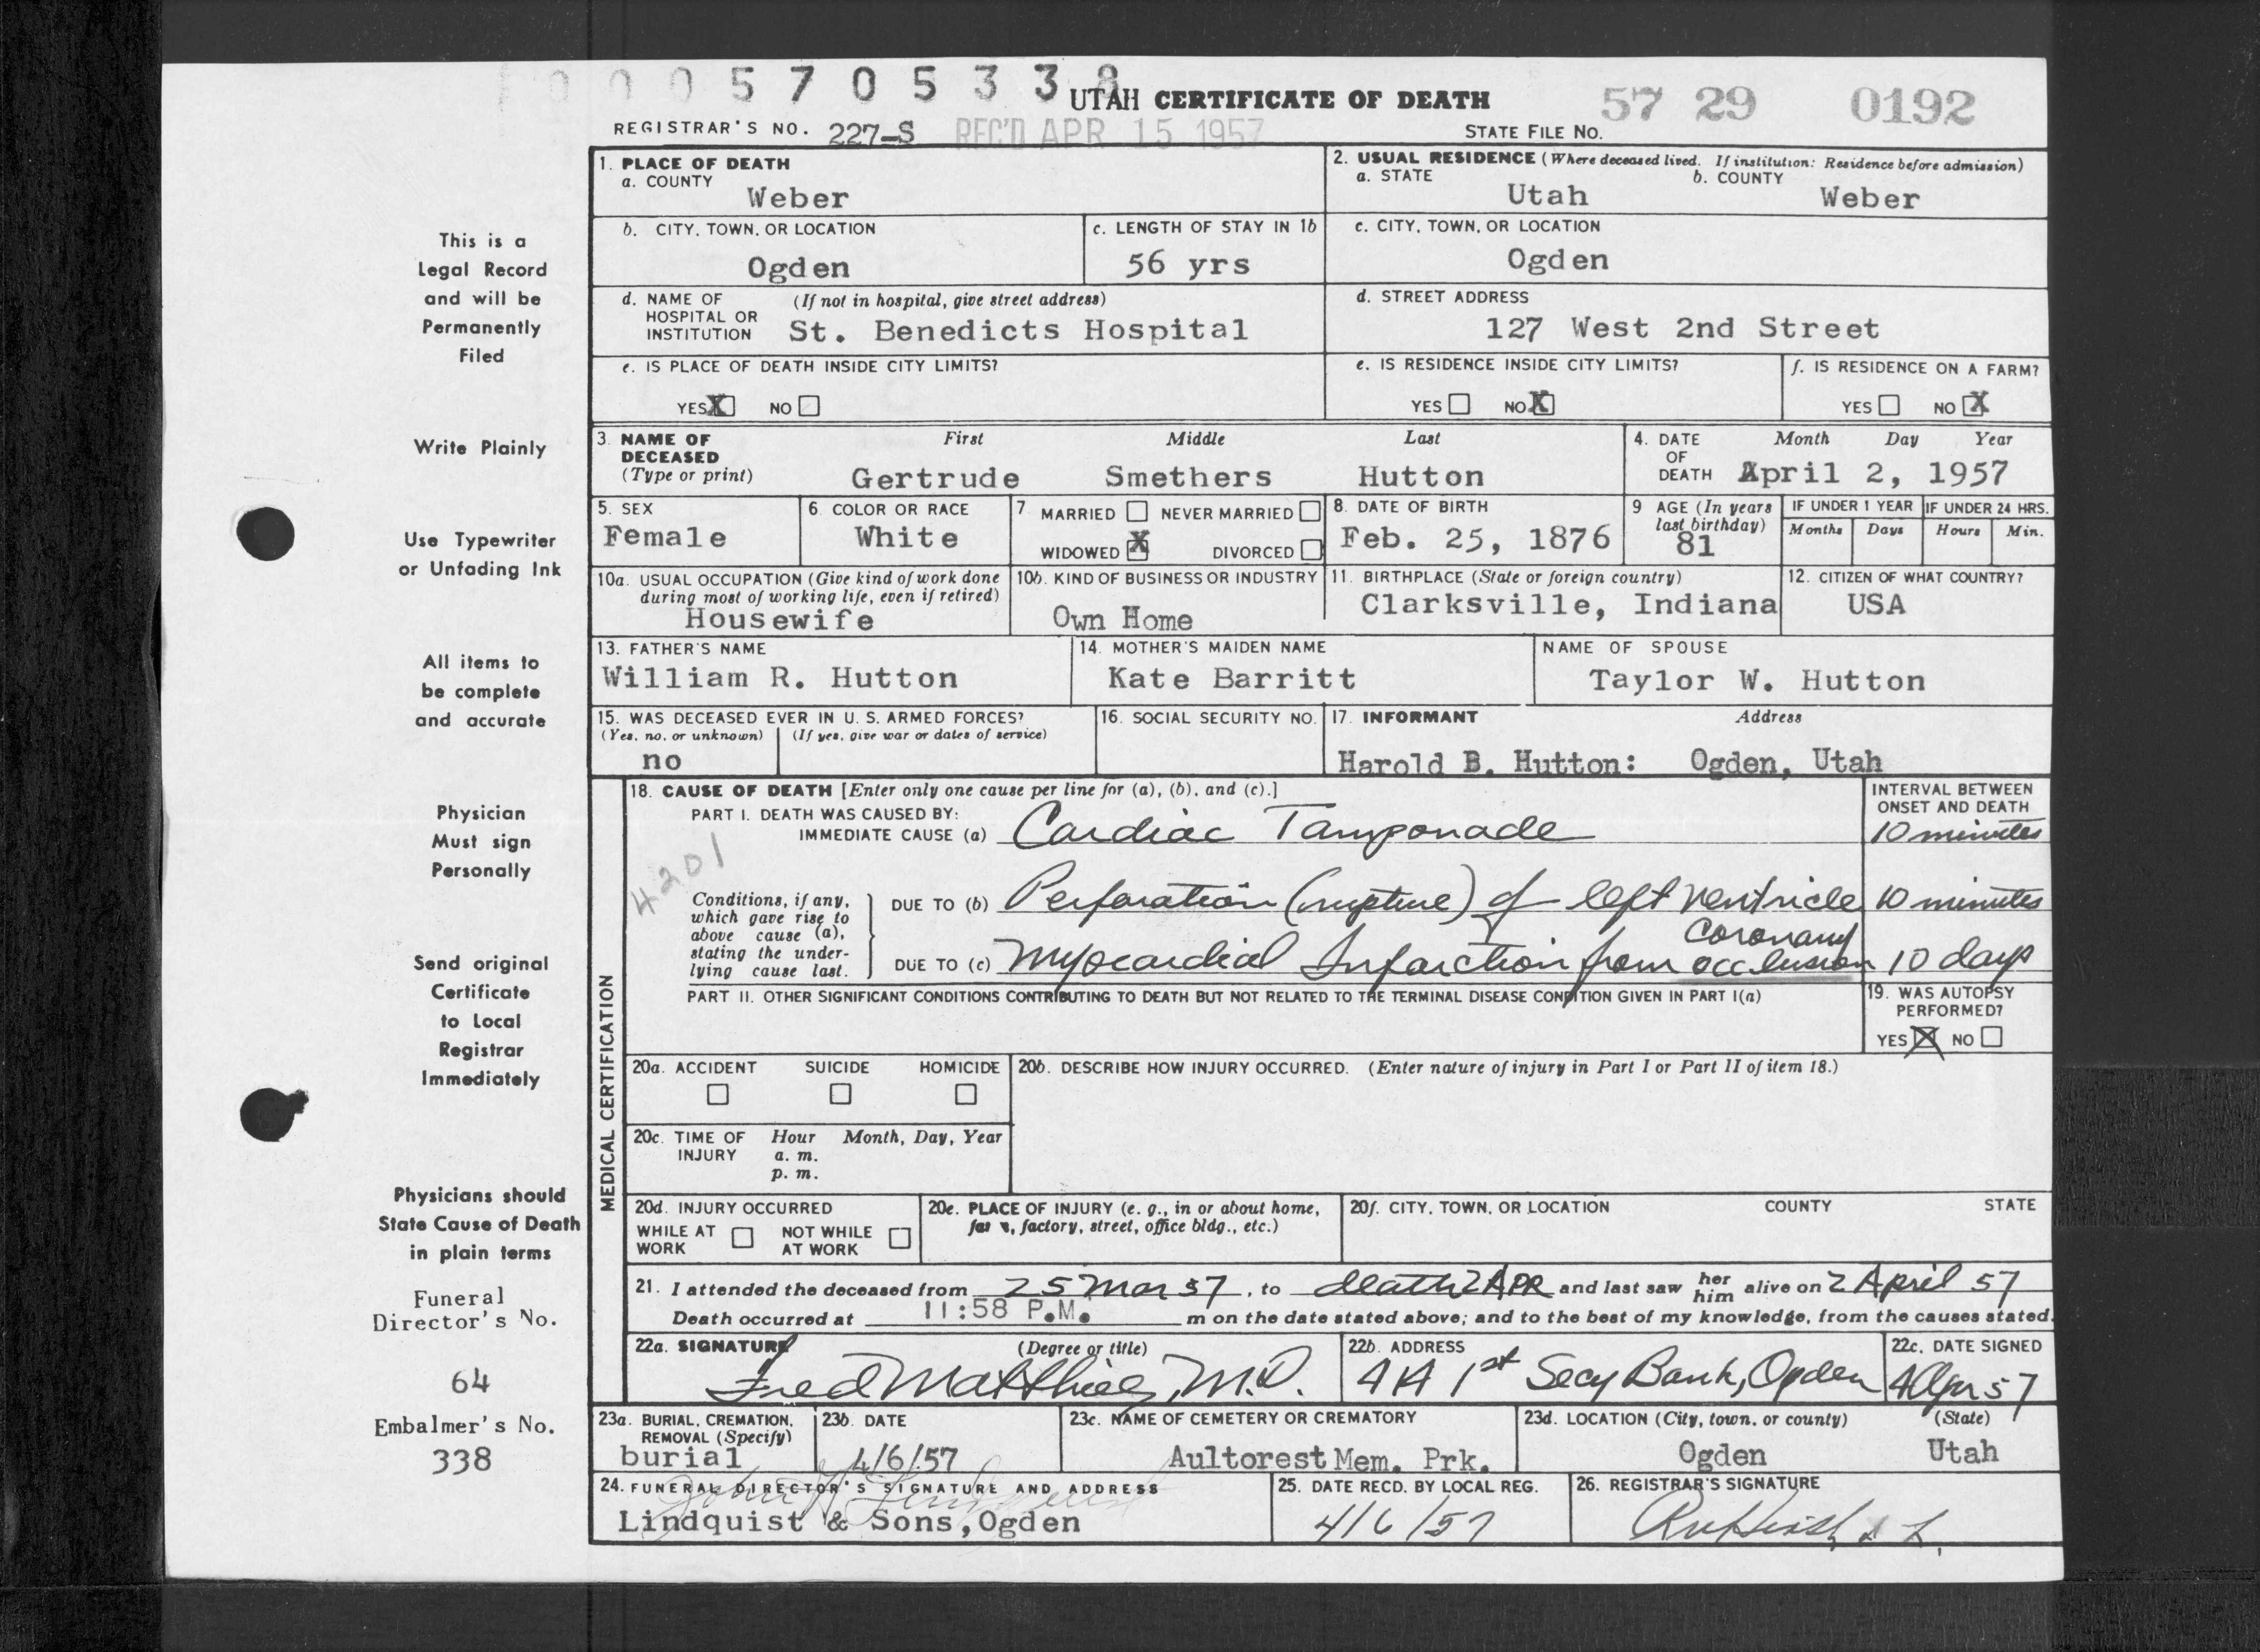 0 0 0 5 7 0 5 3 3 8
UTAH CERTIFICATE OF DEATH
57 29 0192
REGISTRAR'S NO. 227-S REC'D APR 15 1957 STATE FILE NO.
1. PLACE OF DEATH
a. COUNTY
Weber
2. USUAL RESIDENCE (Where deceased lived. If institution: Residence before admission)
a. STATE b. COUNTY
Utah Weber
b. CITY, TOWN, OR LOCATION
Ogden
c. LENGTH OF STAY IN 1b
56 yrs
c. CITY, TOWN, OR LOCATION
Ogden
d. NAME OF (If not in hospital, give street address)
HOSPITAL OR
INSTITUTION St. Benedicts Hospital
d. STREET ADDRESS
127 West 2nd Street
e. IS PLACE OF DEATH INSIDE CITY LIMITS?
YES X NO
e. IS RESIDENCE INSIDE CITY LIMITS?
YES NO X
f. IS RESIDENCE ON A FARM?
YES NO X
3. NAME OF First Middle Last
DECEASED
(Type or print) Gertrude Smethers Hutton
4. DATE Month Day Year
OF
DEATH April 2, 1957
5. SEX
Female
6. COLOR OR RACE
White
7 MARRIED NEVER MARRIED
WIDOWED X DIVORCED
8. DATE OF BIRTH
Feb. 25, 1876
9 AGE (In years
last birthday)
81
IF UNDER 1 YEAR
Months Days
IF UNDER 24 HRS.
Hours Min.
10a. USUAL OCCUPATION (Give kind of work done
during most of working life, even if retired)
Housewife
10b. KIND OF BUSINESS OR INDUSTRY
Own Home
11. BIRTHPLACE (State or foreign country)
Clarksville, Indiana
12. CITIZEN OF WHAT COUNTRY?
USA
13. FATHER'S NAME
William R. Hutton
14. MOTHER'S MAIDEN NAME
Kate Barritt
NAME OF SPOUSE
Taylor W. Hutton
15. WAS DECEASED EVER IN U. S. ARMED FORCES?
(Yes, no, or unknown) (If yes, give war or dates of service)
no
16. SOCIAL SECURITY NO.
17. INFORMANT Address
Harold B. Hutton: Ogden, Utah
MEDICAL CERTIFICATION
18. CAUSE OF DEATH [Enter only one cause per line for (a), (b), and (c).]
INTERVAL BETWEEN
ONSET AND DEATH
PART I. DEATH WAS CAUSED BY:
IMMEDIATE CAUSE (a) Cardiac Tamponade 10 minutes
4201
Conditions, if any,
which gave rise to
above cause (a),
stating the under-
lying cause last.
DUE TO (b) Perforation (rupture) of left ventricle 10 minutes
coronary
DUE TO (c) Myocardial Infarction from occlusion 10 days
PART II. OTHER SIGNIFICANT CONDITIONS CONTRIBUTING TO DEATH BUT NOT RELATED TO THE TERMINAL DISEASE CONDITION GIVEN IN PART I(a)
19. WAS AUTOPSY
PERFORMED?
YES X NO
20a. ACCIDENT SUICIDE HOMICIDE
20b. DESCRIBE HOW INJURY OCCURRED. (Enter nature of injury in Part I or Part II of item 18.)
20c. TIME OF Hour Month, Day, Year
INJURY a. m.
p. m.
20d. INJURY OCCURRED
WHILE AT NOT WHILE
WORK AT WORK
20e. PLACE OF INJURY (e. g., in or about home,
farm, factory, street, office bldg., etc.)
20f. CITY, TOWN, OR LOCATION COUNTY STATE
21. I attended the deceased from 25 Mar 57, to death 2 APR and last saw her him alive on 2 April 57
Death occurred at 11:58 P.M. m on the date stated above; and to the best of my knowledge, from the causes stated.
22a. SIGNATURE (Degree or title)
Fred Matthies, M.D.
22b. ADDRESS
414 1st Secy Bank, Ogden
22c. DATE SIGNED
4 Apr 57
23a. BURIAL, CREMATION,
REMOVAL (Specify)
burial
23b. DATE
4/6/57
23c. NAME OF CEMETERY OR CREMATORY
Aultorest Mem. Prk.
23d. LOCATION (City, town, or county) (State)
Ogden Utah
24. FUNERAL DIRECTOR'S SIGNATURE AND ADDRESS
Lindquist & Sons, Ogden
25. DATE RECD. BY LOCAL REG.
4/6/57
26. REGISTRAR'S SIGNATURE
This is a
Legal Record
and will be
Permanently
Filed
Write Plainly
Use Typewriter
or Unfading Ink
All items to
be complete
and accurate
Physician
Must sign
Personally
Send original
Certificate
to Local
Registrar
Immediately
Physicians should
State Cause of Death
in plain terms
Funeral
Director's No.
64
Embalmer's No.
338